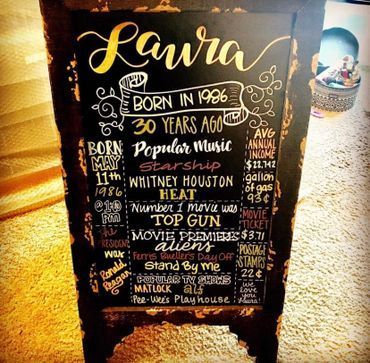 Laura
BORN IN 1986
30 YEARS AGO
BORN
MAY
11th
1986
@
PM
the
RESIDENT
was
Ronald
Reagan
Popular Music
Starship
WHITNEY HOUSTON
HEAT
Number 1 movie was
TOP GUN
MOVIE PREMIERES
aliens
Ferris Bueller's Day Off
Stand By Me
POPULAR TV SHOWS
MATLOCK alf
Pee-Wee's Playhouse
AVG
ANNUAL
INCOME
gallon
of gas
93¢
MOVIE
TICKET
$3.71
POSTAGE
STAMPS
22¢
we
love
you
Laura!